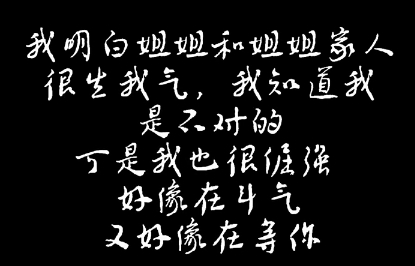 我明白姐姐和姐姐家人
很生我气，我知道我
是不对的
可是我也很倔强
好像在斗气
又好像在等你